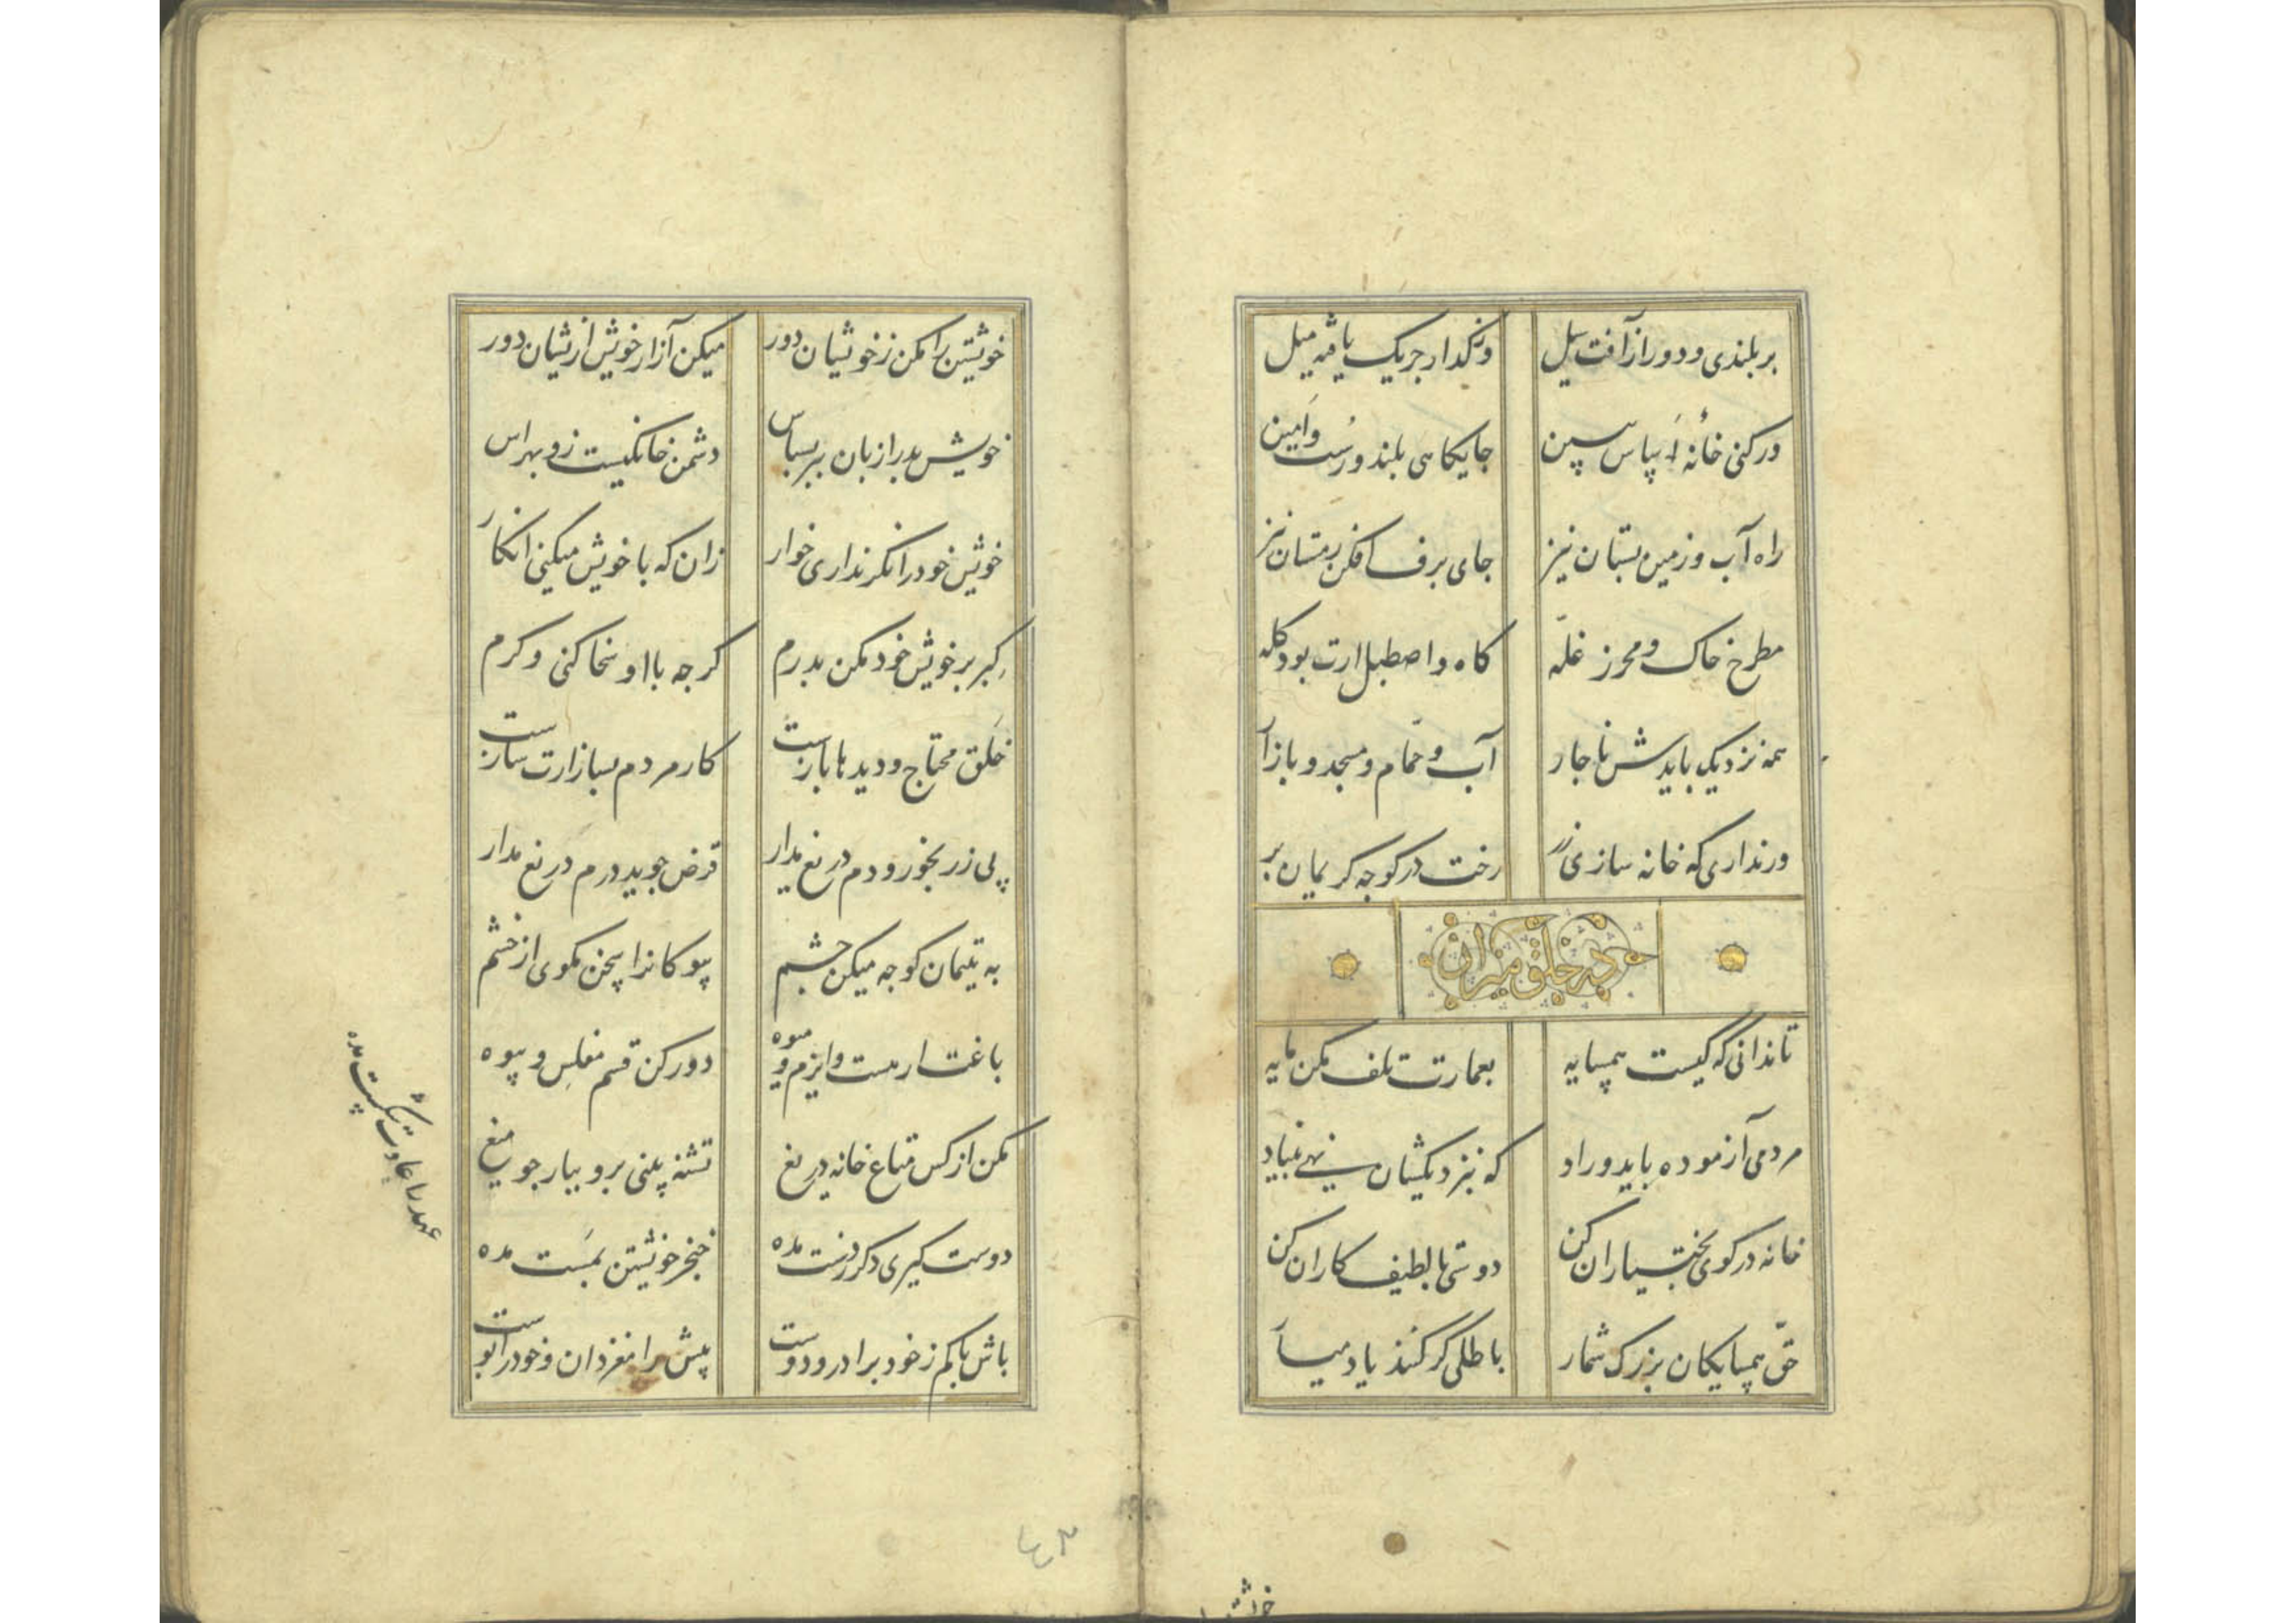 بر بلندی و دور از آفت سیل ورنکدار جریک یا فیه میل
ور کنی خانهٔ اَساس ببین جایکاهی بلند و رُست و اَمین
راه آب و زمین بستان نیز جای برف افکن زمستان نیز
مطرح خاک و محرز غلّه کاه و اصطبل ارت بود کله
همه نزدیک بایدش ناجار آب و حمّام و مسجد و بازار
ور نداری که خانه سازی زر رخت در کوجه کریمان بر
در خلق میزان
تا ندانی که کیست همسایه بعمارت تلف مکن مایه
مردمی آزموده باید و راد که بنزدیکشان نهی بنیاد
خانه در کوی بختیاران کن دوستی با لطیف کاران کن
حقّ همسایکان بزرک شمار باطلی کر کنند یاد میار
خوشتن را مکن ز خویشان دور میکن آزار خویش ازیشان دور
خویش بد را زبان ببر بسپاس دشمن خانکیست زو بهراس
خویش خود را نکر نداری خوار زان که با خویش میکنی انکار
کِبر بر خویش خود مکن بدرم کرجه با او سخا کنی و کرم
خَلق محتاج و دیدها بازست کار مردم بساز ارت سازست
پی زر بخور و دم دریغ مدار قرض جوید درم دریغ مدار
به یتیمان کوجه میکن جشم بیوکانرا سخن مکوی از خشم
باغت ار هست و ایزم و میوه دور کن قسم مفلس و بیوه
مکن از کس متاع خانه دریغ تشنه بینی برو بیار جو میغ
دوست کیری دکر ز دست مده خنجر خویشتن بمَست مده
باش با کم ز خود برادر و دوست پیش را مغز دان و خود را پوست
عهد را عادت شکست مده
خویشتن را